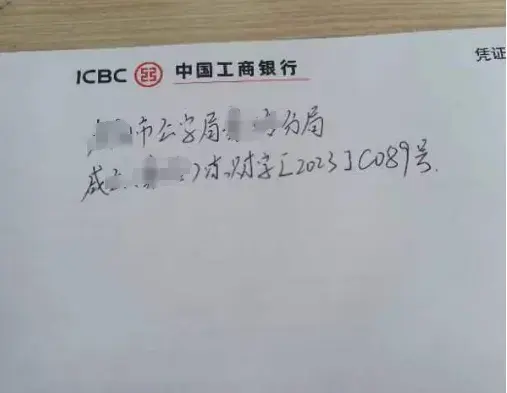 ICBC 中国工商银行
凭证
市公安局 分局
财字[2023]C089号